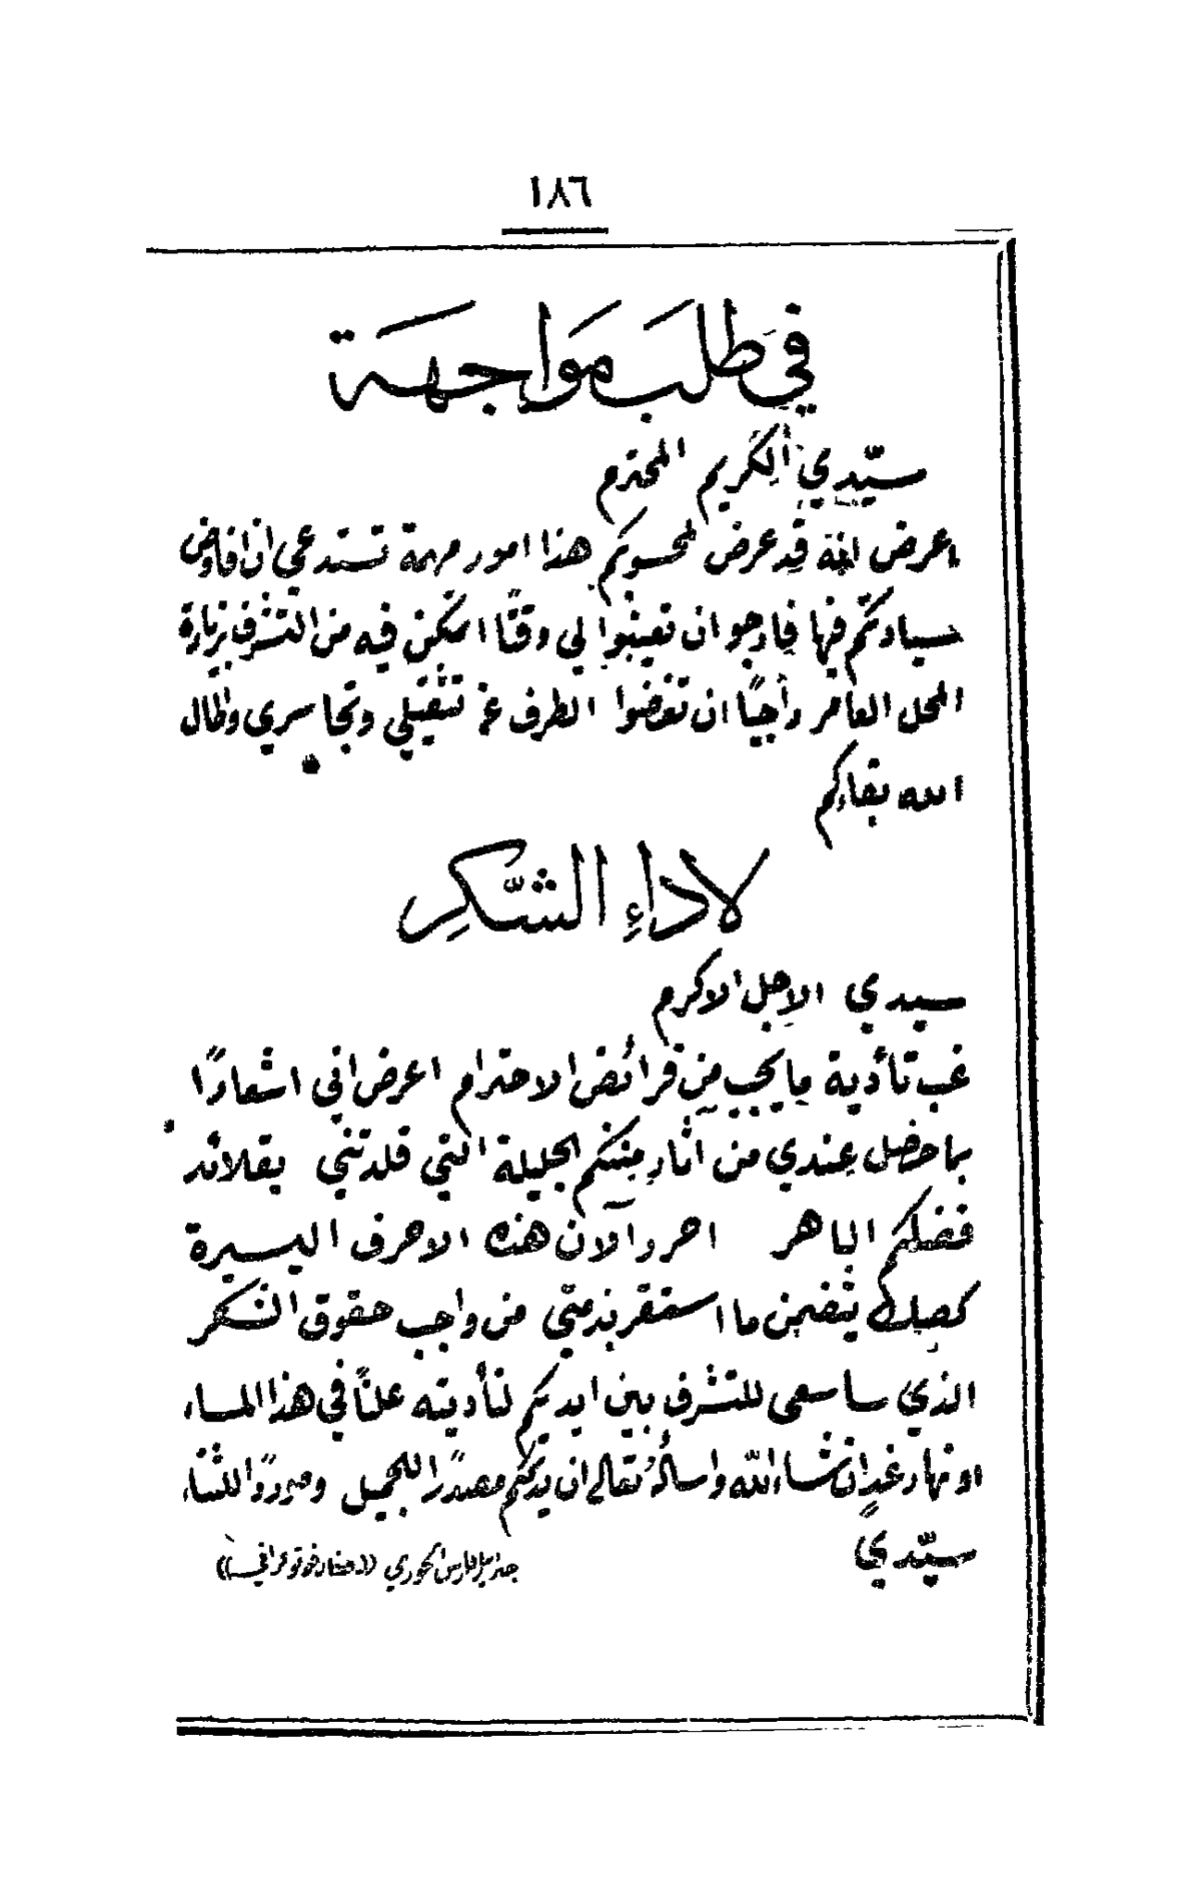 ١٨٦
في طلب مواجهة
سيّدي الكريم المحترم
اعرض انه قد عرض لمحسوبكم هذا امور مهمة تستدعي ان افاوض
سيادتكم فيها فارجو ان تعينوا لي وقتًا اتمكن فيه من التشرف بزيارة
المحل العامر راجيًا ان تغضوا الطرف عن تثقيلي وتجاسري واطال
الله بقاءكم
لاداءِ الشّكرِ
سيدي الاجل الاكرم
غب تأدية ما يجب من فرائض الاحترام اعرض اني اشعارًا
بما حصل عندي من اثار مننكم الجليلة التي قلدتني بقلائد
فضلكم الباهر احرر الان هذه الاحرف اليسيرة
كصك يتضمن ما استقر بذمتي من واجب حقوق الشكر
الذي ساسعى للتشرف بين ايديكم لتأديته علنًا في هذا المساء
او نهار غدٍ ان شاء الله واسألهُ تعالى ان يديمكم مصدرًا للجميل وموردًا للثناء
سيّدي
جبرايل فارس الخوري